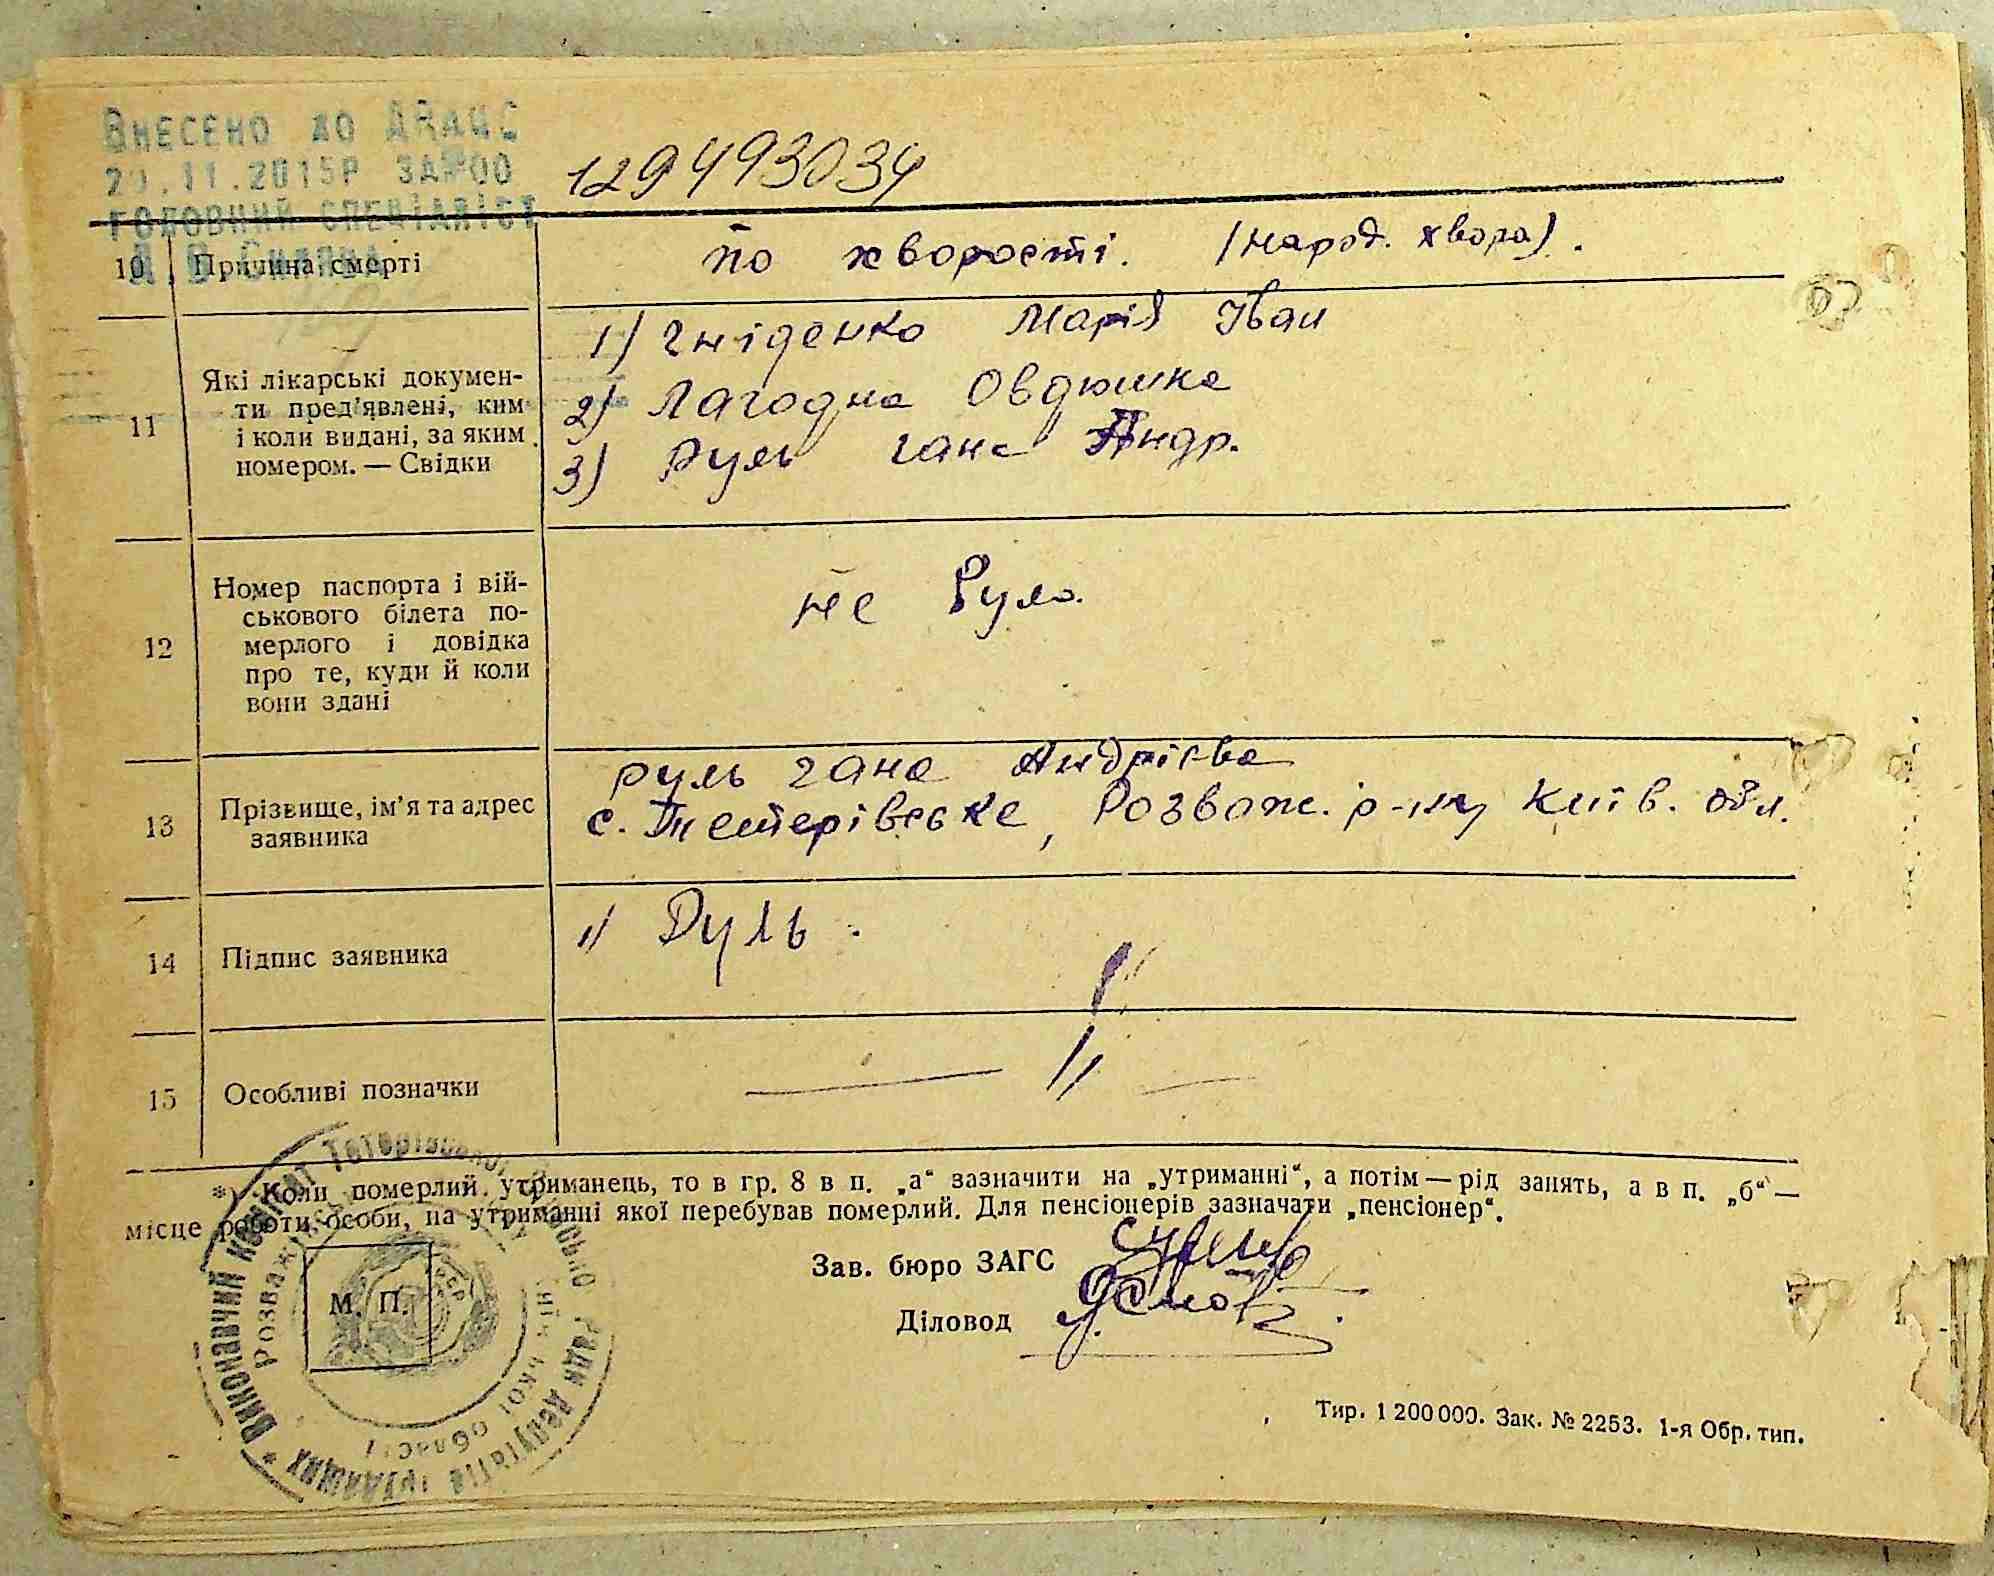 Внесено до ДРАЦС
11.2015р за № 00
головний спеціаліст
129493034
10 Причина смерті
по хворості. (народ. хвора).
11 Які лікарські докумен-
ти пред'явлені, ким
і коли видані, за яким
номером. — Свідки
1) Гніденко Марія Іван
2) Лагодна Овдюшка
3) Руль Гана Андр.
12 Номер паспорта і вій-
ськового білета по-
мерлого і довідка
про те, куди й коли
вони здані
не було.
13 Прізвище, ім'я та адрес
заявника
Руль Гана Андрієва
с. Тетерівське, Розваж. р-ну Київ. обл.
14 Підпис заявника
1) Руль.
15 Особливі позначки
— // —
*) Коли померлий утриманець, то в гр. 8 в п. „а“ зазначити на „утриманні“, а потім — рід занять, а в п. „б“ —
місце роботи особи, на утриманні якої перебував померлий. Для пенсіонерів зазначати „пенсіонер“.
Зав. бюро ЗАГС
Діловод
М. П.
* Виконавчий комітет Тетерівської сільської ради депутатів трудящих
Розважівськ Київської області
Тир. 1 200 000. Зак. № 2253. 1-я Обр. тип.